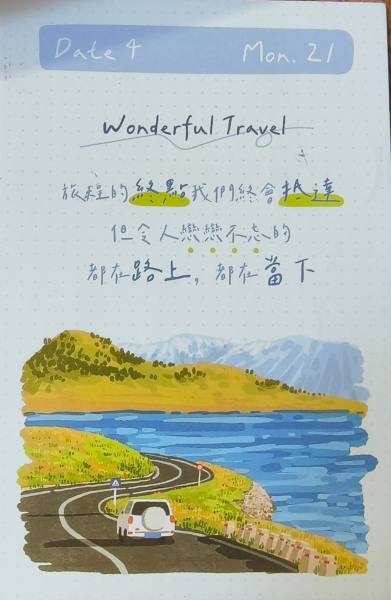 Date 4 Mon. 21
Wonderful Travel
旅程的終點我們終會抵達
但令人戀戀不忘的
都在路上，都在當下